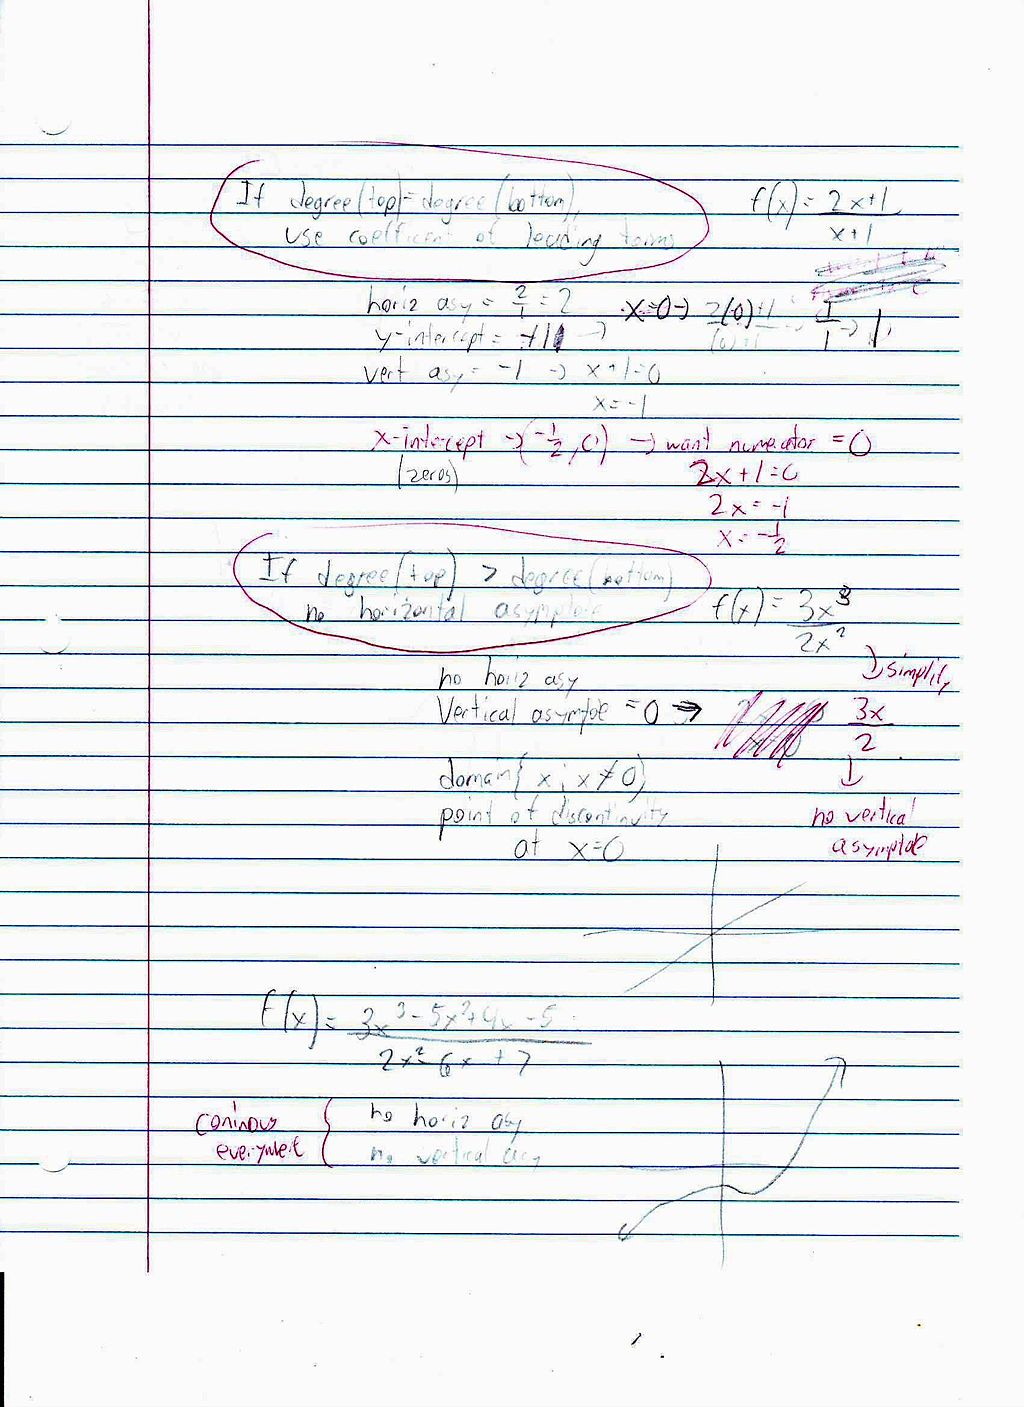 If degree(top)=degree(bottom),
use coefficient of leading terms
f(x) = 2x+1
x+1
horiz asy = 2/1 = 2
x=0 → 2(0)+1 / (0)+1 → 1/1 → 1
y-intercept = +1 →
vert asy = -1 → x+1=0
x=-1
x-intercept → (-1/2, 0) → want numerator = 0
(zeros)
2x+1=0
2x=-1
x=-1/2
If degree(top) > degree(bottom)
no horizontal asymptote
f(x) = 3x³
2x²
simplify
no horiz asy
Vertical asymptoe = 0 →
3x
2
domain{ x ; x≠0}
point of discontinuity
at x=0
no vertical
asymptote
f(x) = 3x³-5x²+4x-5
2x²-6x+7
coninous
everywere
no horiz asy
no vertical asy